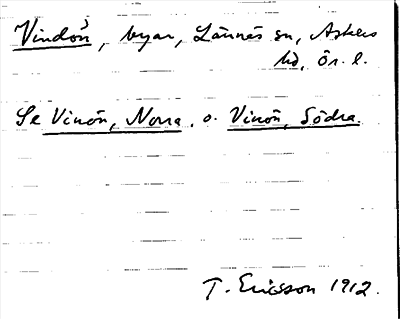 Vindön, byar, Lännäs sn, Askers
hd, Ör. l.
Se Vinön, Norra, o. Vinön, Södra.
T. Ericsson 1912.